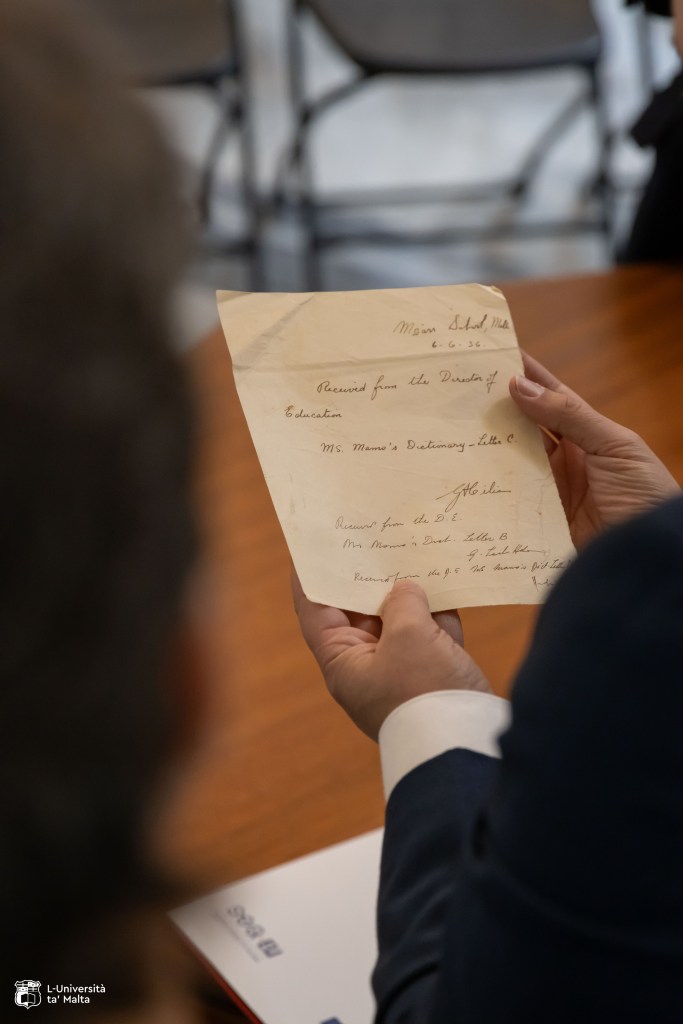 School, Malt
6-6-36
Received from the Director of
Education
Ms. Mamo's Dictionary - Letter C.
Received from the D.E.
Ms Mamo's Dict. Letter B
Received from the D.E Ms Mamo's Dict
L-Università
ta' Malta